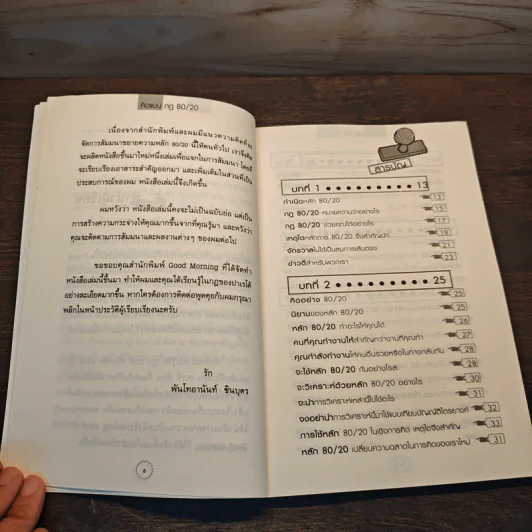 คิดแบบ กฎ 80/20
เนื่องจากสำนักพิมพ์และผมมีแนวความคิดที่จะ
จัดการสัมมนาขยายความหลัก 80/20 นี้ให้คนทั่วไป เราจึงคิด
จะผลิตหนังสือขึ้นมาใหม่หนึ่งเล่มเพื่อแจกในการสัมมนา โดยที่
จะเรียบเรียงเอาสาระสำคัญออกมา และเพิ่มเติมในส่วนที่เป็น
ประสบการณ์ของผม หนังสือเล่มนี้จึงเกิดขึ้น
ผมหวังว่า หนังสือเล่มนี้คงจะไม่เป็นฉบับย่อ แต่เป็น
การสร้างความกระจ่างให้คุณมากขึ้นจากที่คุณรู้มา และหวังว่า
คุณจะติดตามการสัมมนาและผลงานต่างๆ ของผมต่อไป
ขอขอบคุณสำนักพิมพ์ Good Morning ที่ได้จัดทำ
หนังสือเล่มนี้ขึ้นมา ทำให้ผมและคุณได้เรียนรู้ในกฎของปาเรโต้
อย่างละเอียดมากขึ้น หากใครต้องการติดต่อพูดคุยกับผมกรุณา
พลิกในหน้าประวัติผู้เรียบเรียงนะครับ
รัก
พันโทอานันท์ ชินบุตร
6
สารบัญ
บทที่ 1 13
กำเนิดหลัก 80/20 13
กฎ 80/20 หมายความว่าอย่างไร 15
กฎ 80/20 ช่วยคุณได้อย่างไร 17
เหตุใดหลักการ 80/20 จึงสำคัญนัก 19
จักรวาลไม่ได้เป็นสมการเส้นตรง 21
ข่าวดีสำหรับพวกเรา 23
บทที่ 2 25
คิดอย่าง 80/20 25
นิยามของหลัก 80/20 25
หลัก 80/20 ทำอะไรให้คุณได้ 26
คนที่คุณทำงานให้สำคัญกว่างานที่คุณทำ 27
คุณกำลังทำงานให้คนอื่นรวยหรือในทางกลับกัน 28
จะใช้หลัก 80/20 กันอย่างไรล่ะ 28
จะวิเคราะห์ด้วยหลัก 80/20 อย่างไร 30
จะนำการวิเคราะห์เหล่านี้ไปใช้อะไร 31
จงอย่านำการวิเคราะห์นี้มาใช้แบบเทียบบัญญัติไตรยางศ์ 32
การใช้หลัก 80/20 ในเชิงการคิด เหตุใดจึงสำคัญ 33
หลัก 80/20 เปลี่ยนความฉลาดในการคิดของเราใหม่ 31